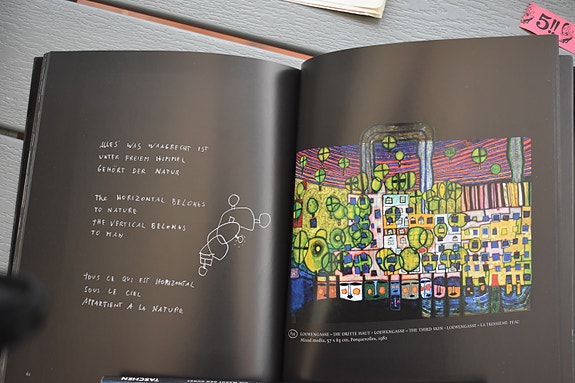 5!!
"ALLES" WAS WAAGRECHT IST
UNTER FREIEM HIMMEL
GEHÖRT DER NATUR
THE HORIZONTAL BELONGS
TO NATURE
THE VERTICAL BELONGS
TO MAN
TOUS CE QUI EST HORIZONTAL
SOUS LE CIEL
APPARTIENT A LA NATURE
LOEWENGASSE – DIE DRITTE HAUT • LOEWENGASSE – THE THIRD SKIN • LOEWENGASSE – LA TROISIEME PEAU
Mixed media, 57 x 83 cm, Porquerolles, 1982
TASCHEN